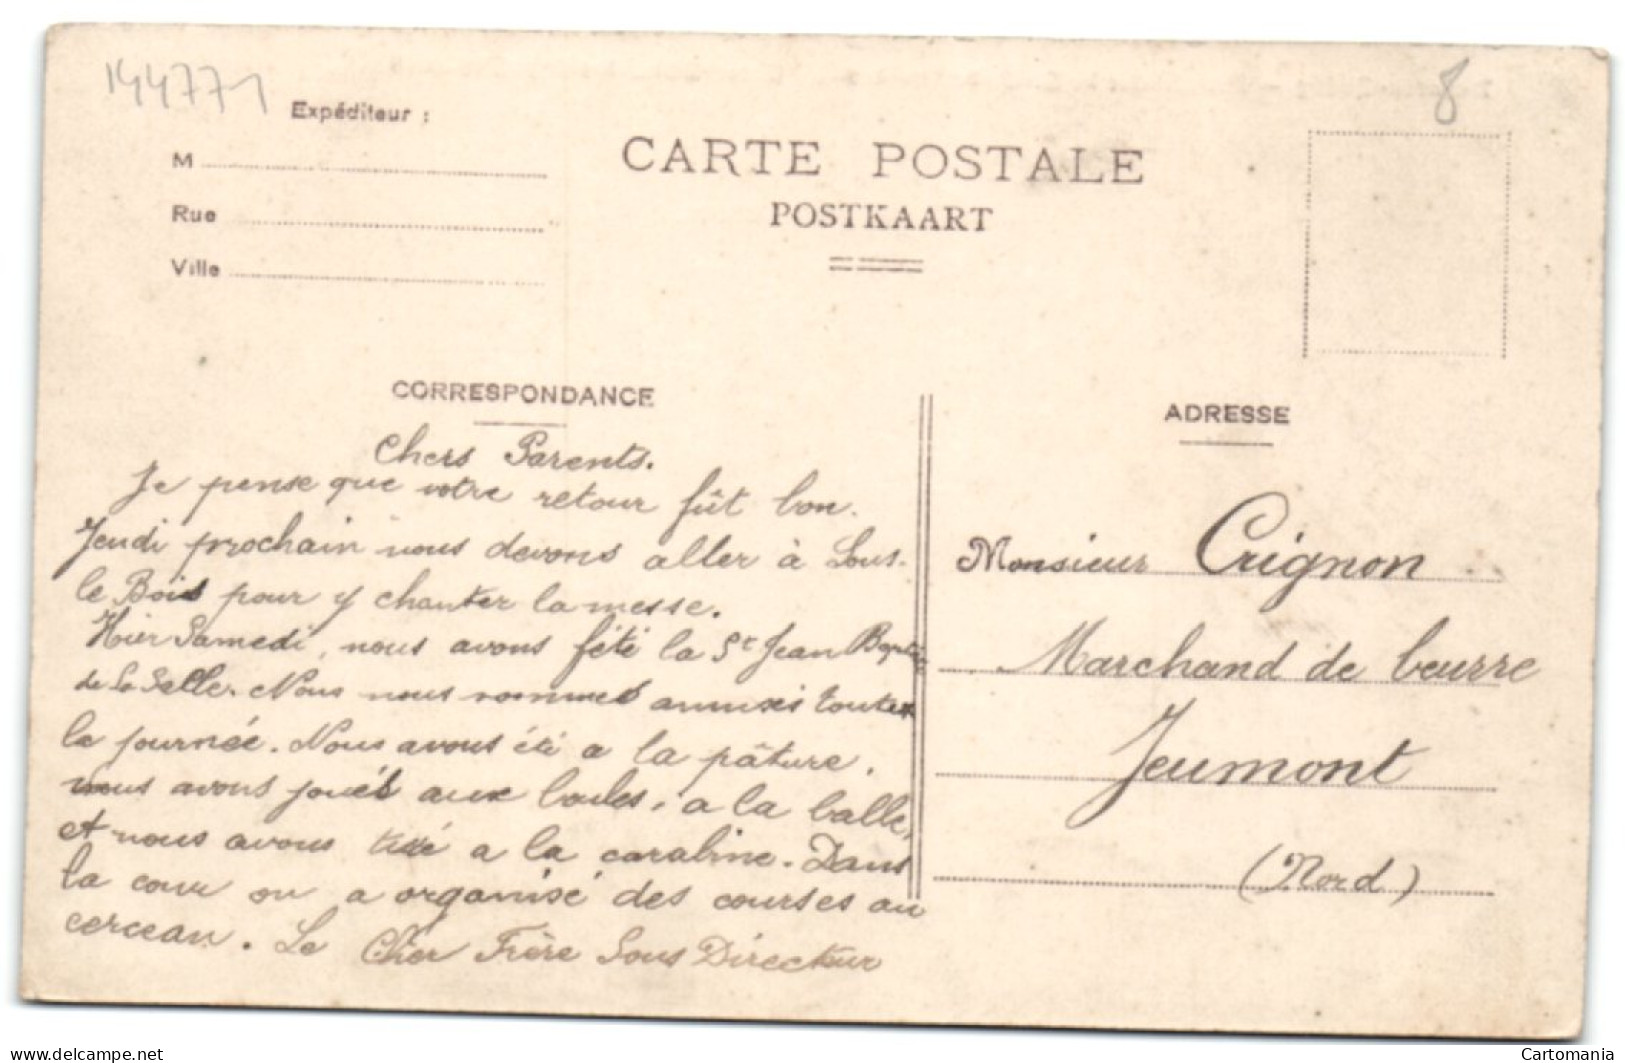 144771
8
Expéditeur :
M
Rue
Ville
CARTE POSTALE
POSTKAART
CORRESPONDANCE
Chers Parents.
Je pense que votre retour fût bon.
Jeudi prochain nous devons aller à Sous-
le Bois pour y chanter la messe.
Hier Samedi, nous avons fêté la St Jean Baptiste
de La Salle. Nous nous sommes amusés toute
la journée. Nous avons été a la pâture.
nous avons joués aux boules, a la balle,
et nous avons tiré a la carabine. Dans
la cour on a organisé des courses au
cerceau. Le Cher Frère Sous Directeur
ADRESSE
Monsieur Crignon
Marchand de beurre
Jeumont
(Nord)
www.delcampe.net
Cartomania